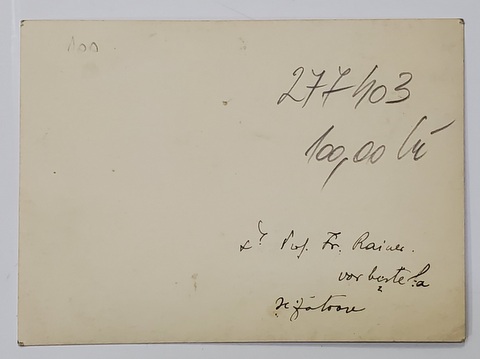 100
277403
100,00 lei
Dr Prof. Fr. Rainer.
vorbește la
șezătoare